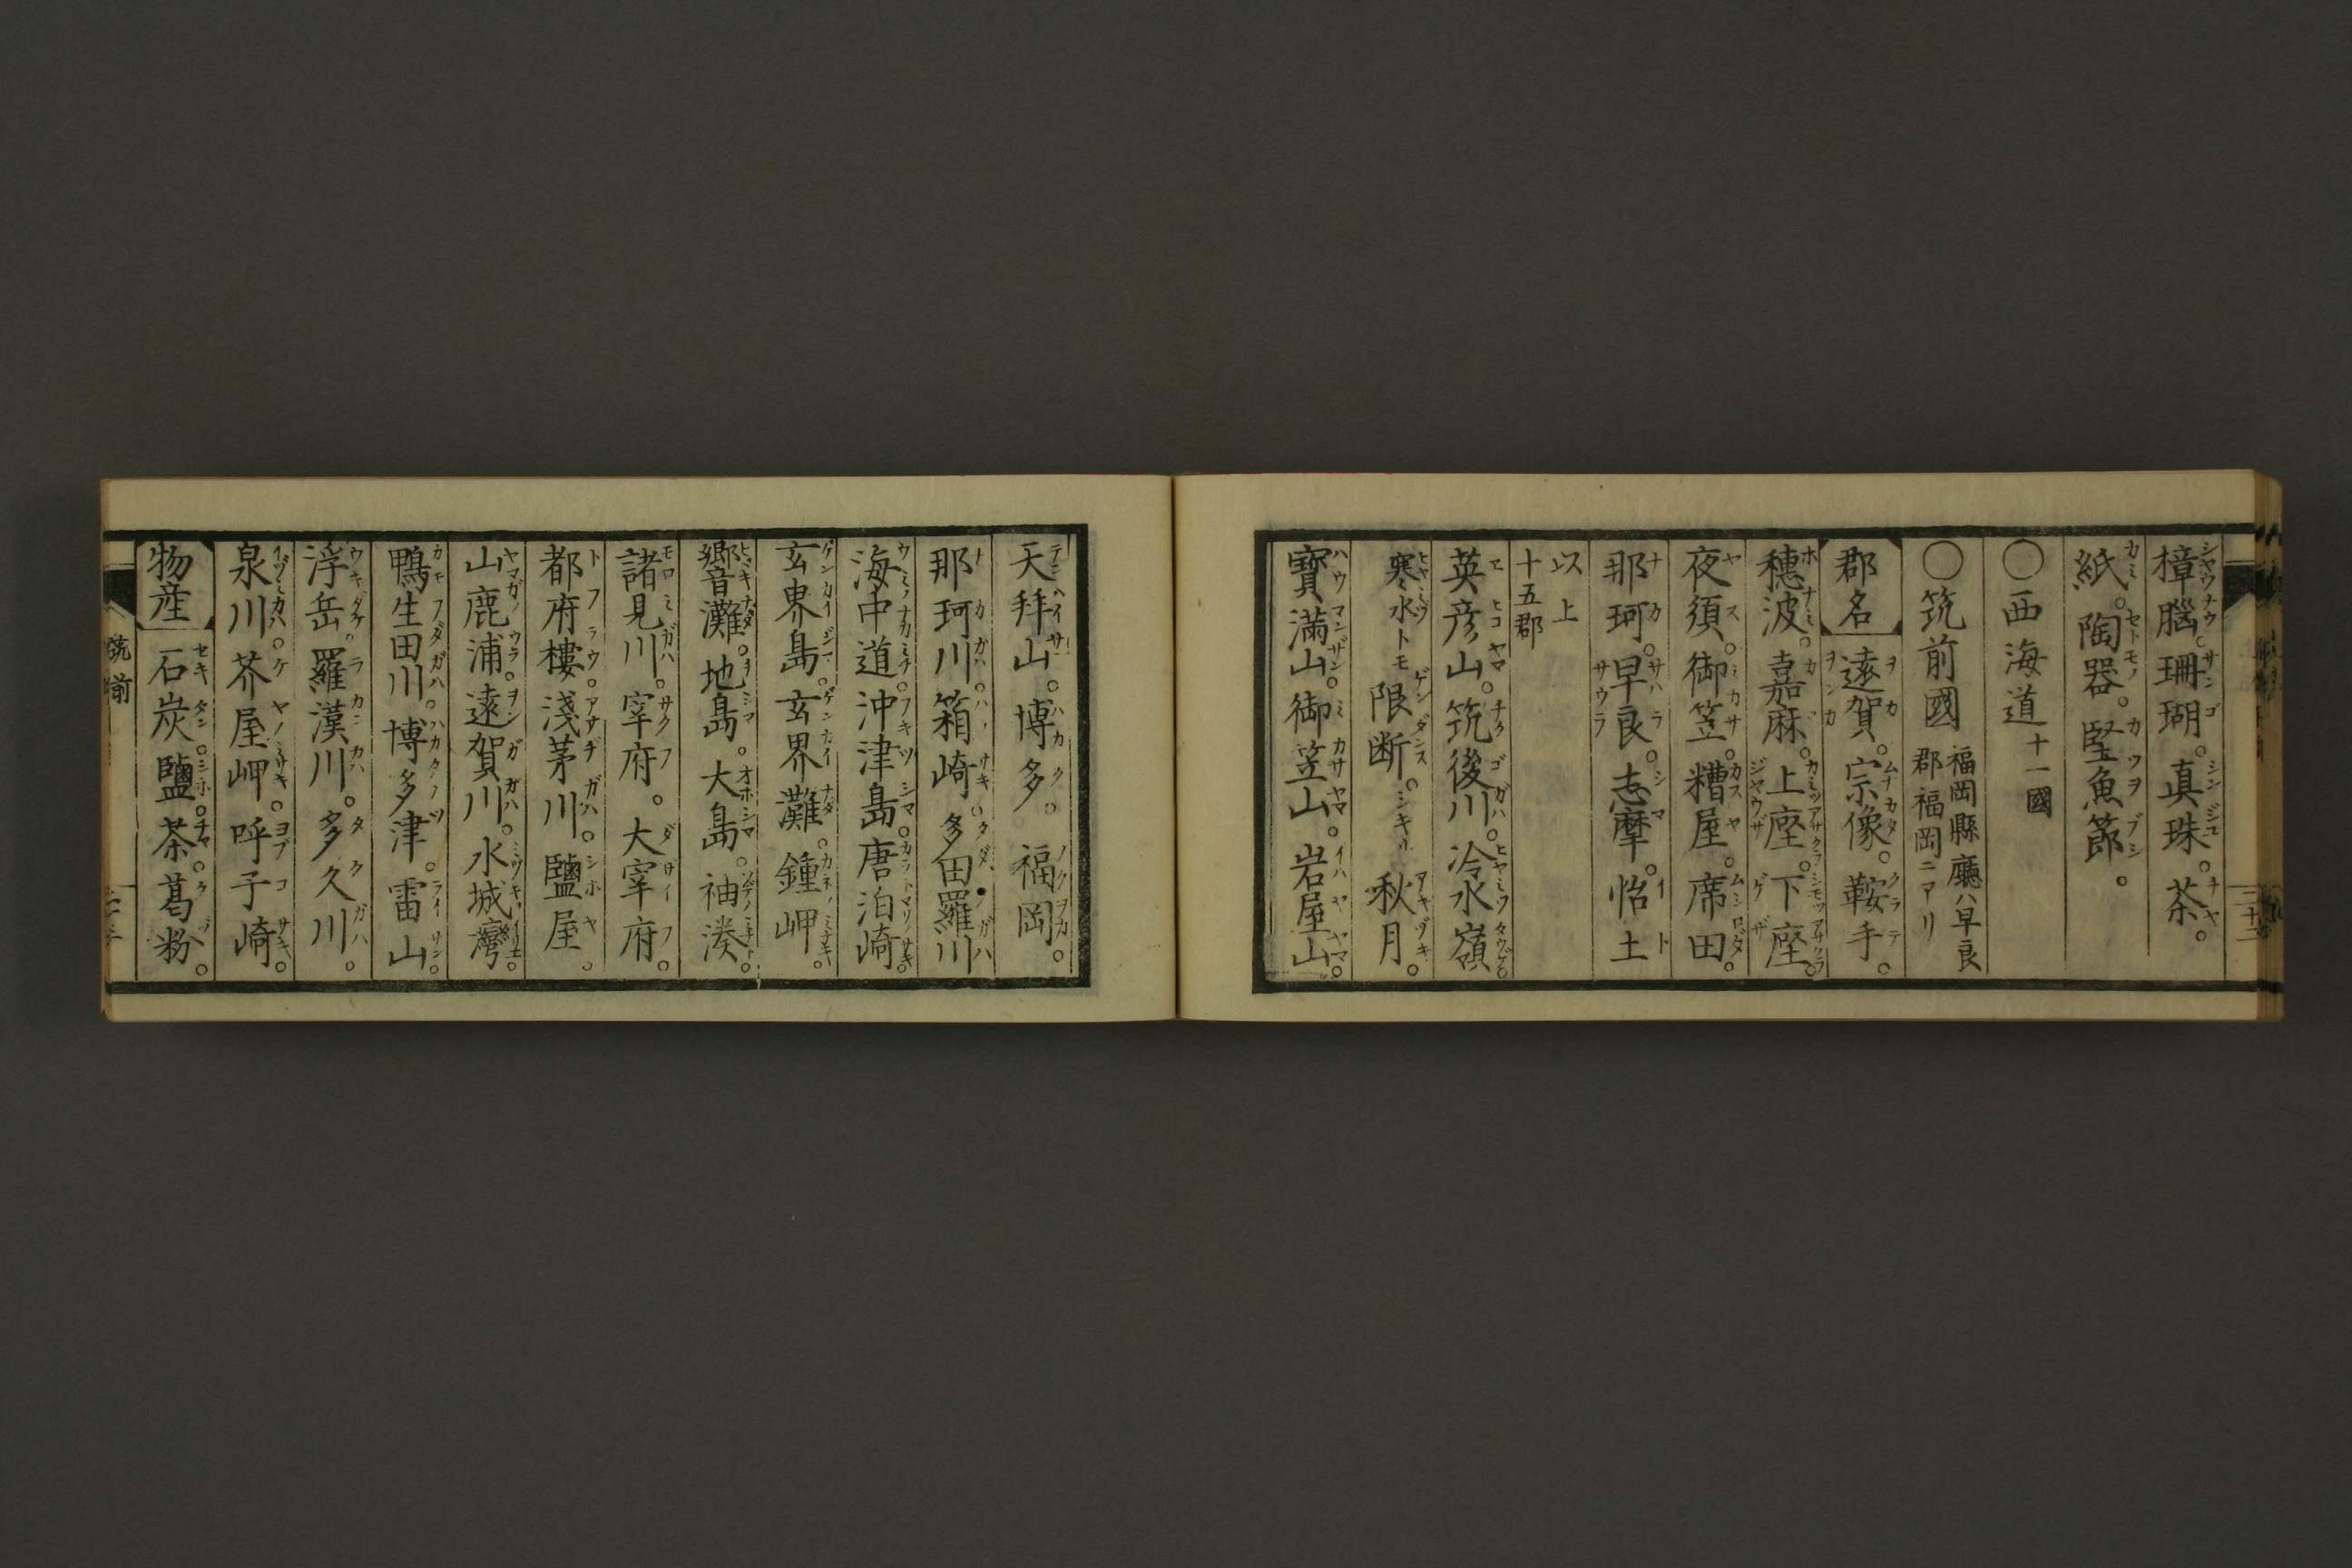 樟腦。珊瑚。真珠。茶。
紙。陶器。堅魚節。
〇西海道十一國
〇筑前國 福岡縣廳ハ早良
郡福岡ニアリ
郡名 遠賀。宗像。鞍手。
穗波。嘉麻。上座。下座。
夜須。御笠。糟屋。席田。
那珂。早良。志摩。怡土
以上
十五郡
英彦山。筑後川。冷水嶺
寒水トモ 限断。秋月。
寶滿山。御笠山。岩屋山。
天拜山。博多。福岡。
那珂川。箱崎。多田羅川
海中道。沖津島。唐泊崎。
玄界島。玄界灘。鍾岬。
響灘。地島。大島。袖湊。
諸見川。宰府。大宰府。
都府樓。淺茅川。鹽屋。
山鹿浦。遠賀川。水城灣。
鴨生田川。博多津。雷山。
浮岳。羅漢川。多久川。
泉川。芥屋岬。呼子崎。
物産 石炭。鹽。茶。葛粉。
筑前